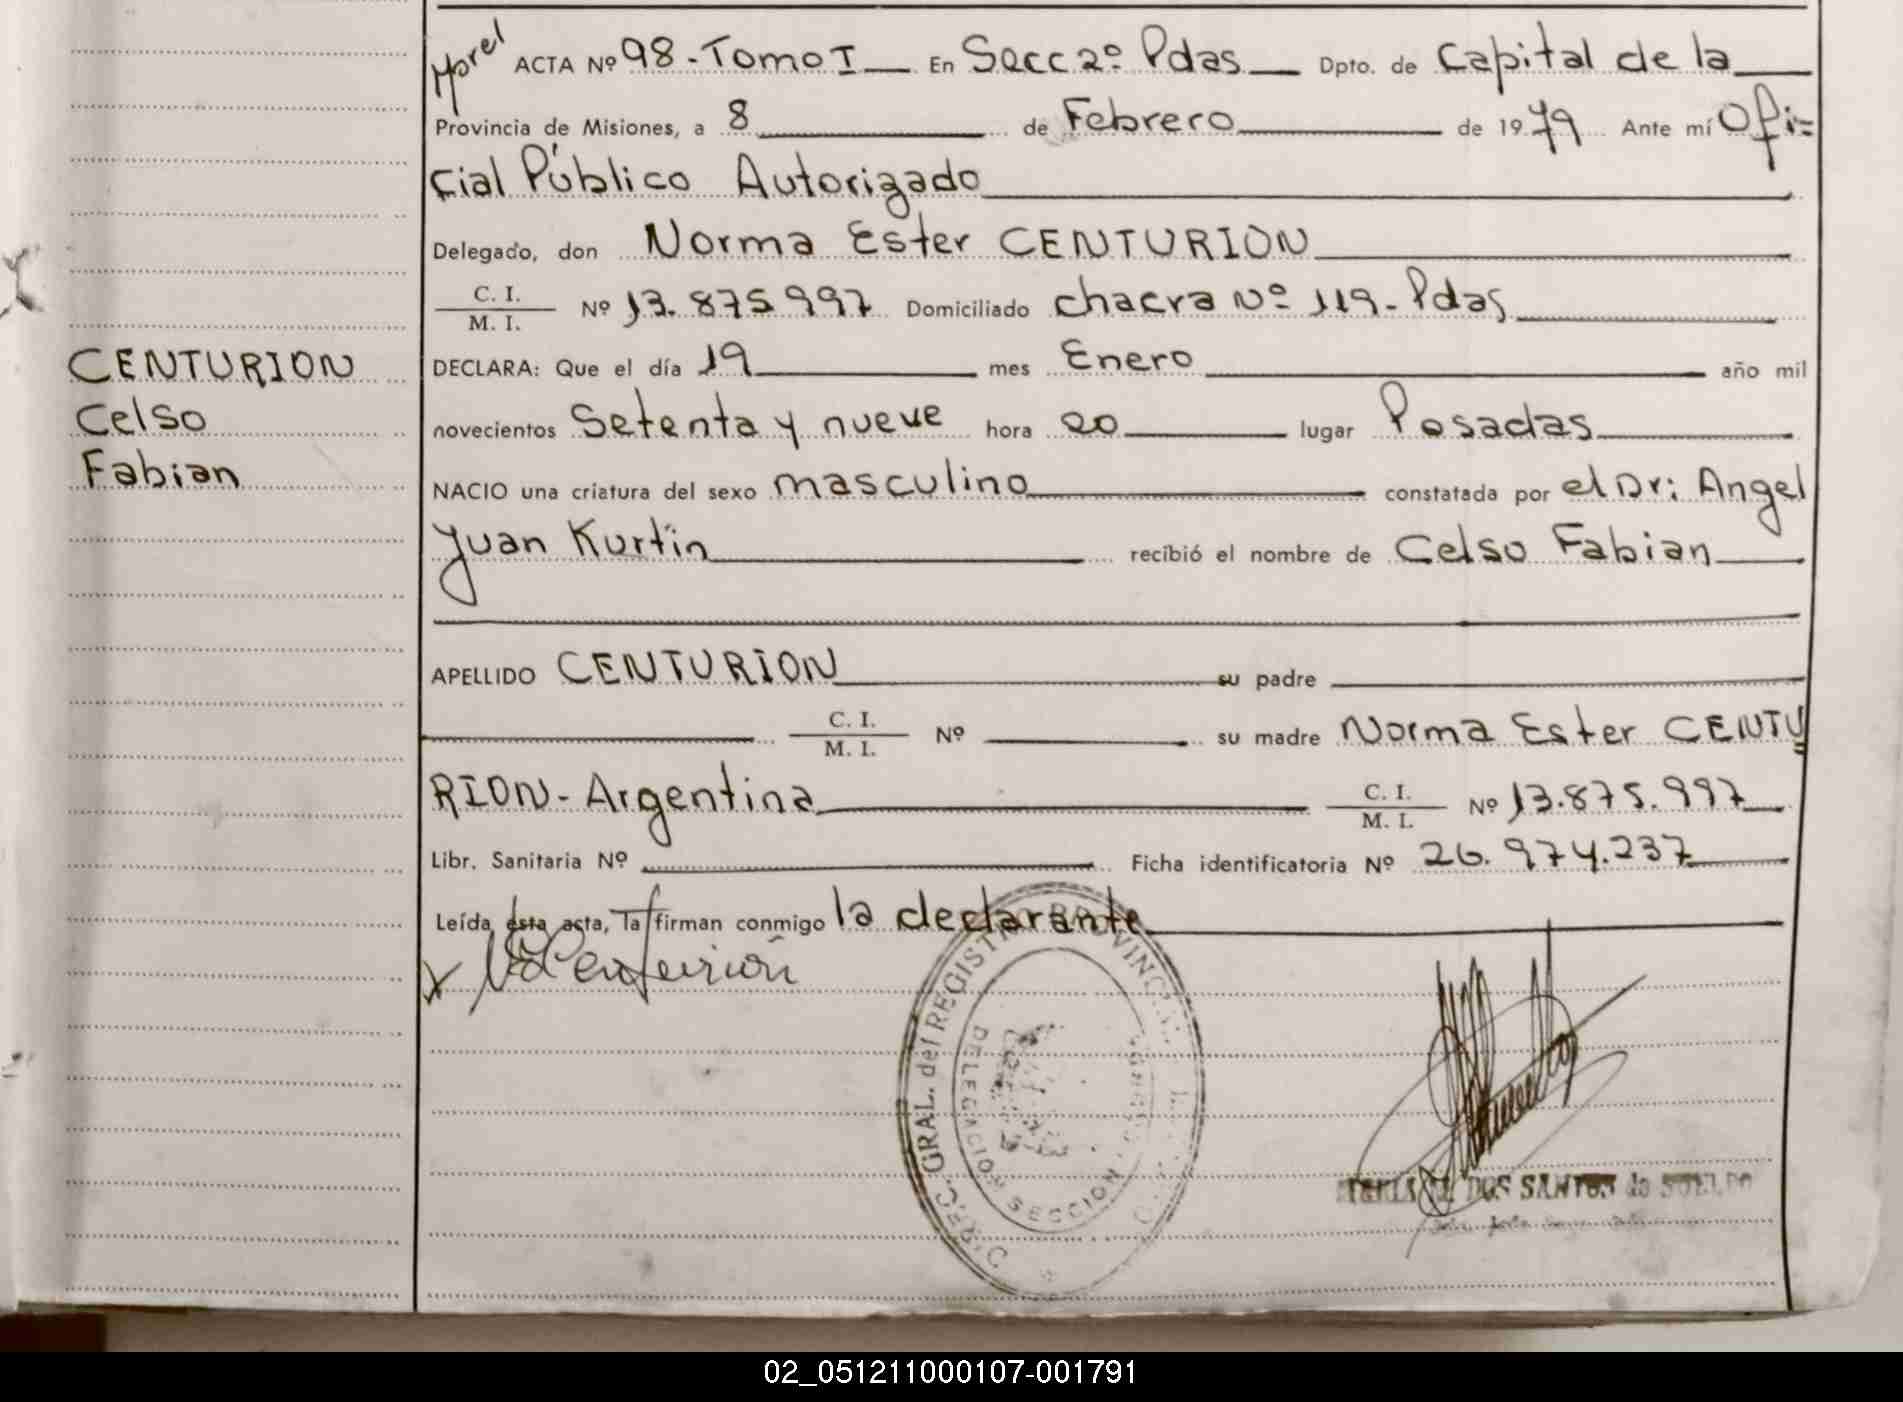 Morel ACTA Nº 98 - Tomo I En Secc 2º Pdas Dpto. de Capital de la
Provincia de Misiones, a 8 de Febrero de 1979 Ante mí Ofi=
cial Público Autorizado
Delegado, don Norma Ester CENTURION
C. I.
M. I. Nº 13.875997 Domiciliado chacra Nº 119 - Pdas
CENTURION
Celso
Fabian
DECLARA: Que el día 19 mes Enero año mil
novecientos Setenta y nueve hora 20 lugar Posadas
NACIO una criatura del sexo masculino constatada por el Dr: Angel
Juan Kurtin recibió el nombre de Celso Fabian
APELLIDO CENTURION su padre
C. I.
M. I. Nº su madre Norma Ester CENTU
RION - Argentina C. I.
M. I. Nº 13.875.997
Libr. Sanitaria Nº Ficha identificatoria Nº 26.974.237
Leída ésta acta, la firman conmigo la declarante
Centurión
GRAL. del REGISTRO PROVINCIAL
DELEGACION SECCION
DOS SANTOS de
02_051211000107-001791